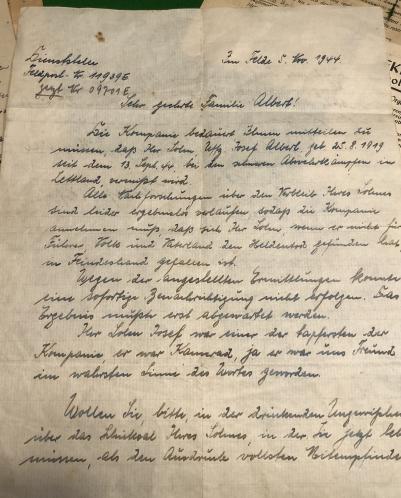 Dienststelle
Feldpost-Nr 11989E
jetzt Nr 09701E
Im Felde 5. Nov. 1944.
Sehr geehrte Familie Albert!
Die Kompanie bedauert Ihnen mitteilen zu
müssen, daß Ihr Sohn Uffz. Josef Albert, geb. 25.8.1919
seit dem 13. Sept. 44. bei den schweren Abwehrkämpfen in
Lettland vermißt wird.
Alle Nachforschungen über den Verbleib Ihres Sohnes
sind leider ergebnislos verlaufen, sodaß die Kompanie
annehmen muß, daß sich Ihr Sohn, wenn er nicht für
Führer, Volk und Vaterland den Heldentod gefunden hat
in Feindesland gefallen ist.
Wegen der angestellten Ermittlungen konnte
eine sofortige Benachrichtigung nicht erfolgen. Das
Ergebnis mußte erst abgewartet werden.
Ihr Sohn Josef war einer der tapfersten der
Kompanie, er war Kamerad, ja er war uns Freund
im wahrsten Sinne des Wortes geworden.
Wollen Sie, bitte, in der drückenden
über das Schicksal Ihres Sohnes, in der Sie jetzt
müssen, als den Ausdruck vollsten